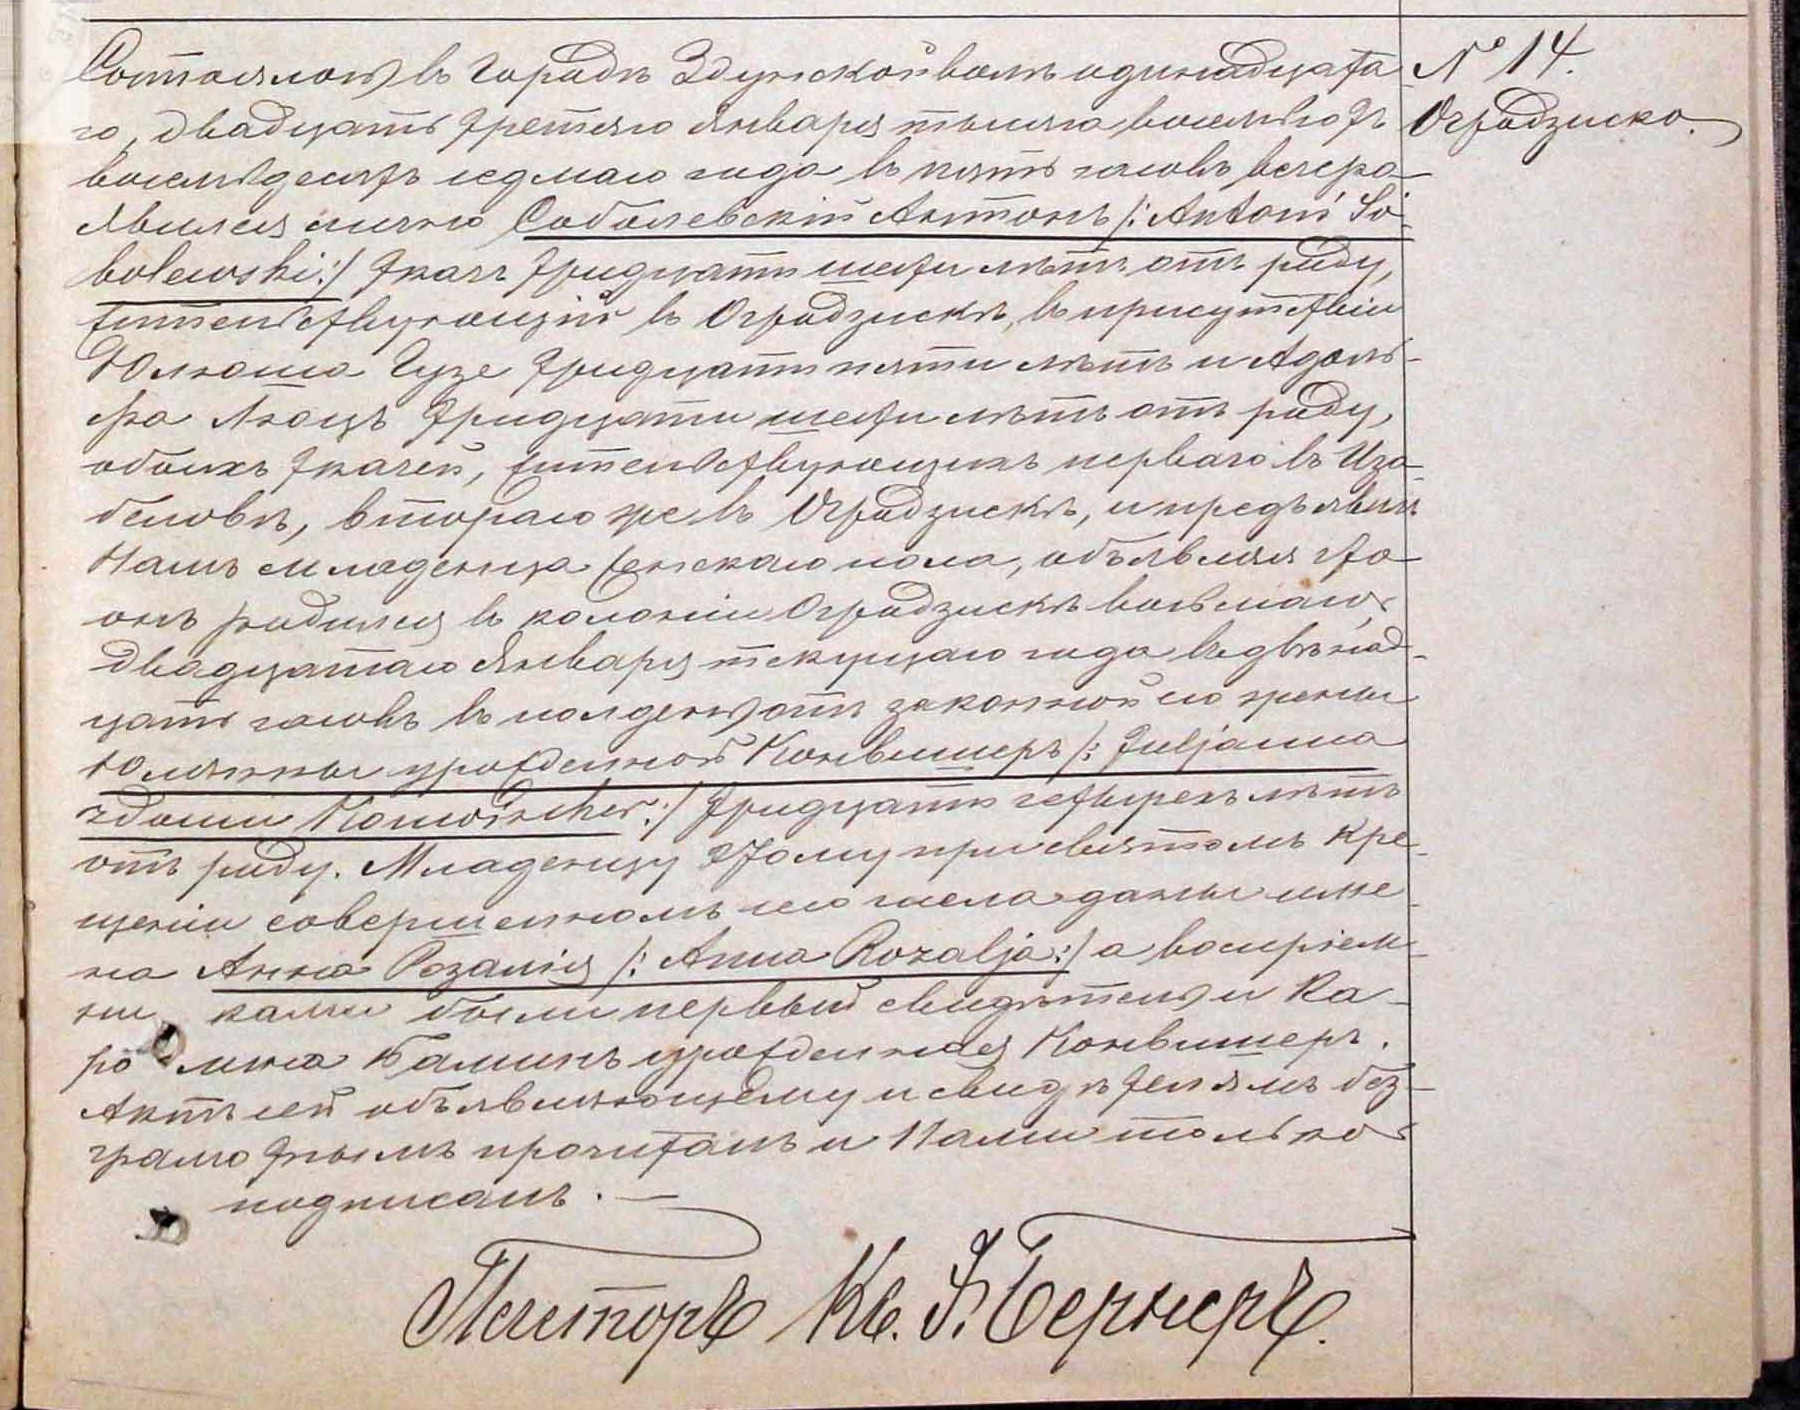 № 14.
Огродзиско.
Состоялось въ городѣ Здунской волѣ одинадцата
го, двадцать третяго Января тысяча восемьсотъ
восемьдесятъ седмаго года въ пять часовъ вечера
явился лично Соболевскій Антонъ /: Antoni So-
bolewski :/ ткачъ тридцати шести лѣтъ отъ роду,
жительствующій въ Огродзискѣ, въ присутствіи
Юлюша Гузе тридцати пяти лѣтъ и Адоль-
фа тридцати шести лѣтъ отъ роду,
обоихъ ткачей, жительствующихъ перваго въ Иза-
беловѣ, втораго же въ Огродзискѣ, и предъявилъ
Намъ младенца женскаго пола, объявляя что
онъ родился въ колоніи Огродзискѣ восьмаго,
двадцатаго Января текущаго года въ двѣнад-
цать часовъ въ полдень отъ законной его жены
Юлянны урожденной Конвишеръ /: Juljanna
zdomu Konwischer :/ тридцати четырехъ лѣтъ
отъ роду. Младенцу этому при святомъ Кре-
щеніи совершенномъ сего числа даны име-
на Анна Розалія /: Anna Rozalja :/ а воспріем-
ни ками были первый свидѣтель и Ка-
ро лина урожденная Конвишеръ.
Актъ сей объявляющему и свидѣтелямъ без-
грамотнымъ прочитанъ и Нами только
подписанъ. —
Пасторъ Кс. Ф. Бернеръ.